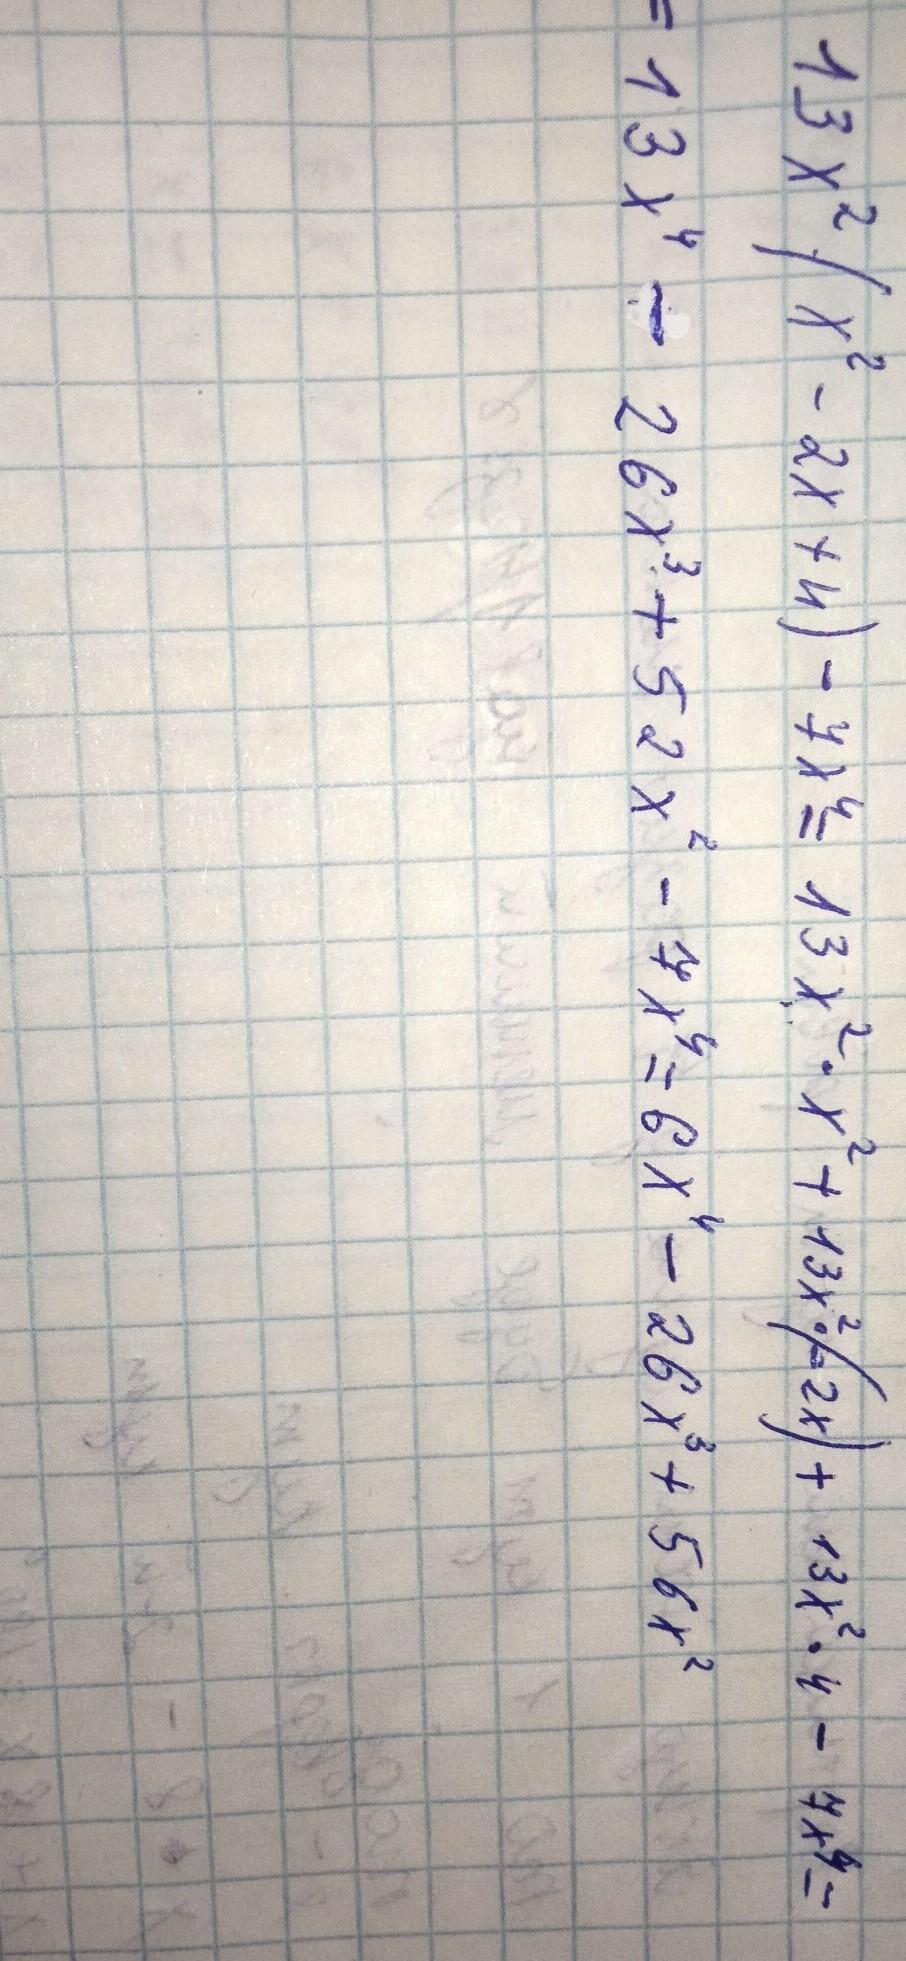 13x²(x² - 2x + 4) - 7x⁴ = 13x² · x² + 13x² · (-2x) + 13x² · 4 - 7x⁴ =
= 13x⁴ - 26x³ + 52x² - 7x⁴ = 6x⁴ - 26x³ + 56x²